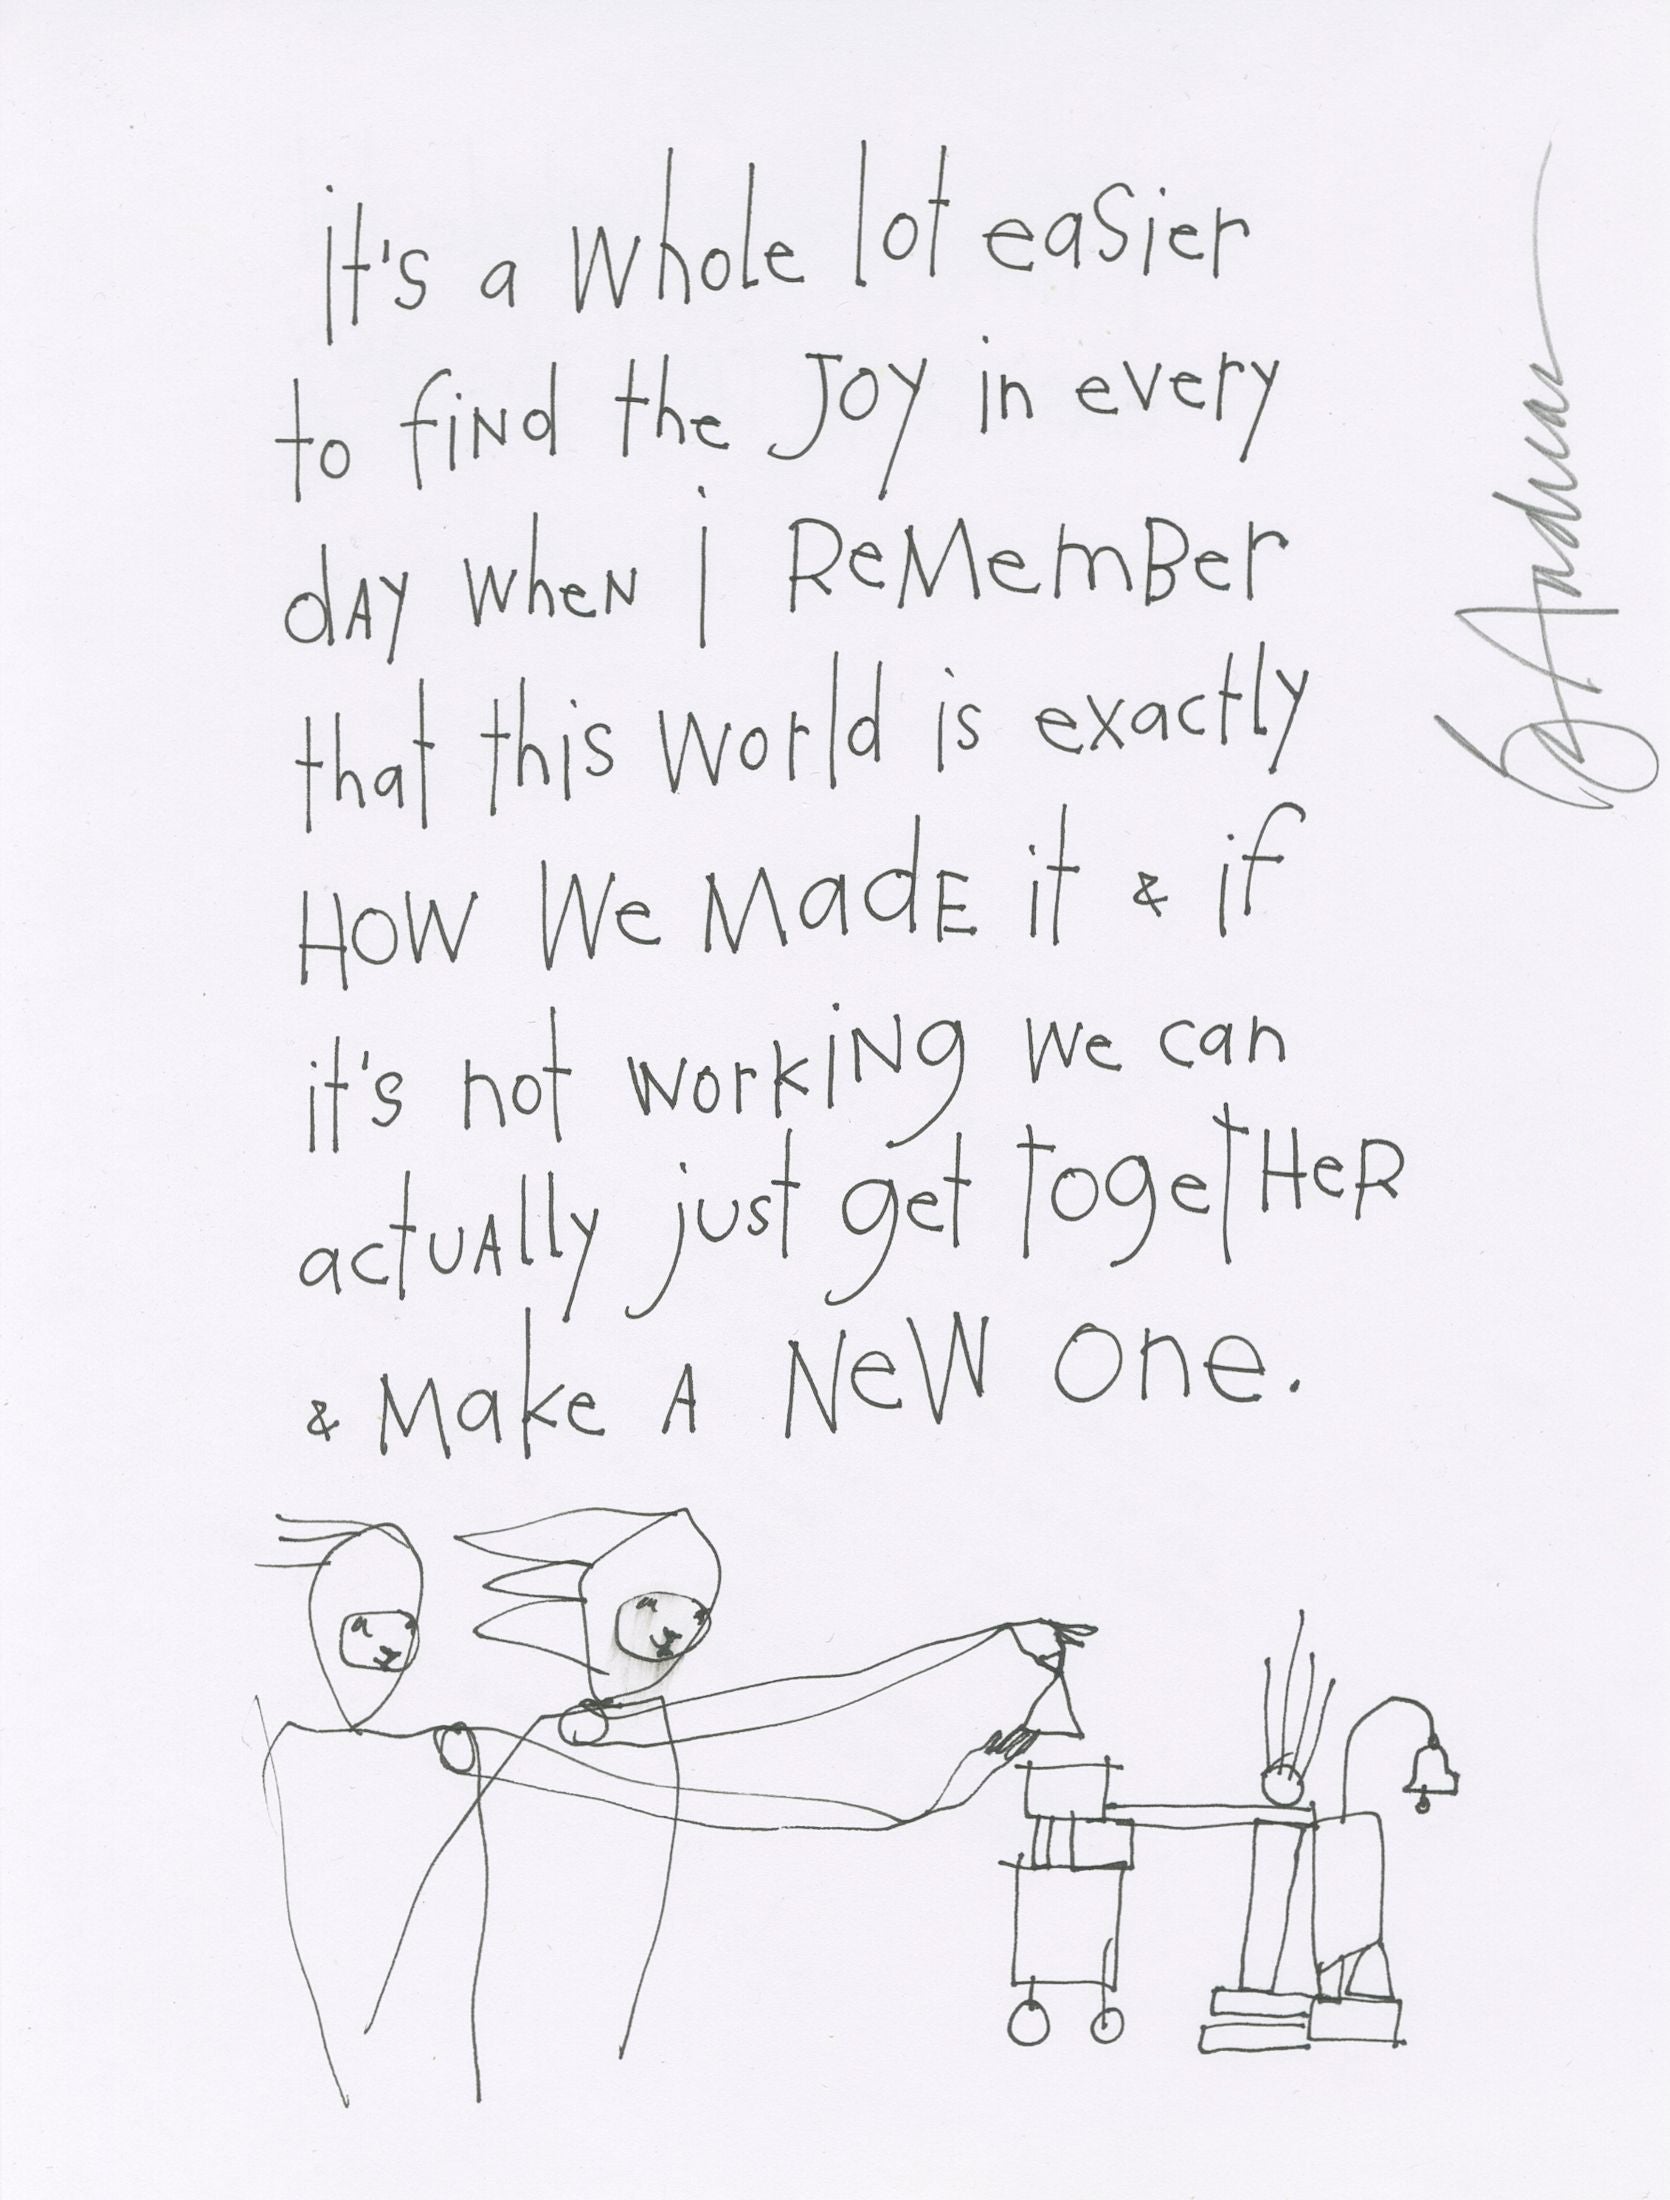 it's a whole lot easier
to find the joy in every
day when i remember
that this world is exactly
how we made it & if
it's not working we can
actually just get together
& make a new one.
Andreas